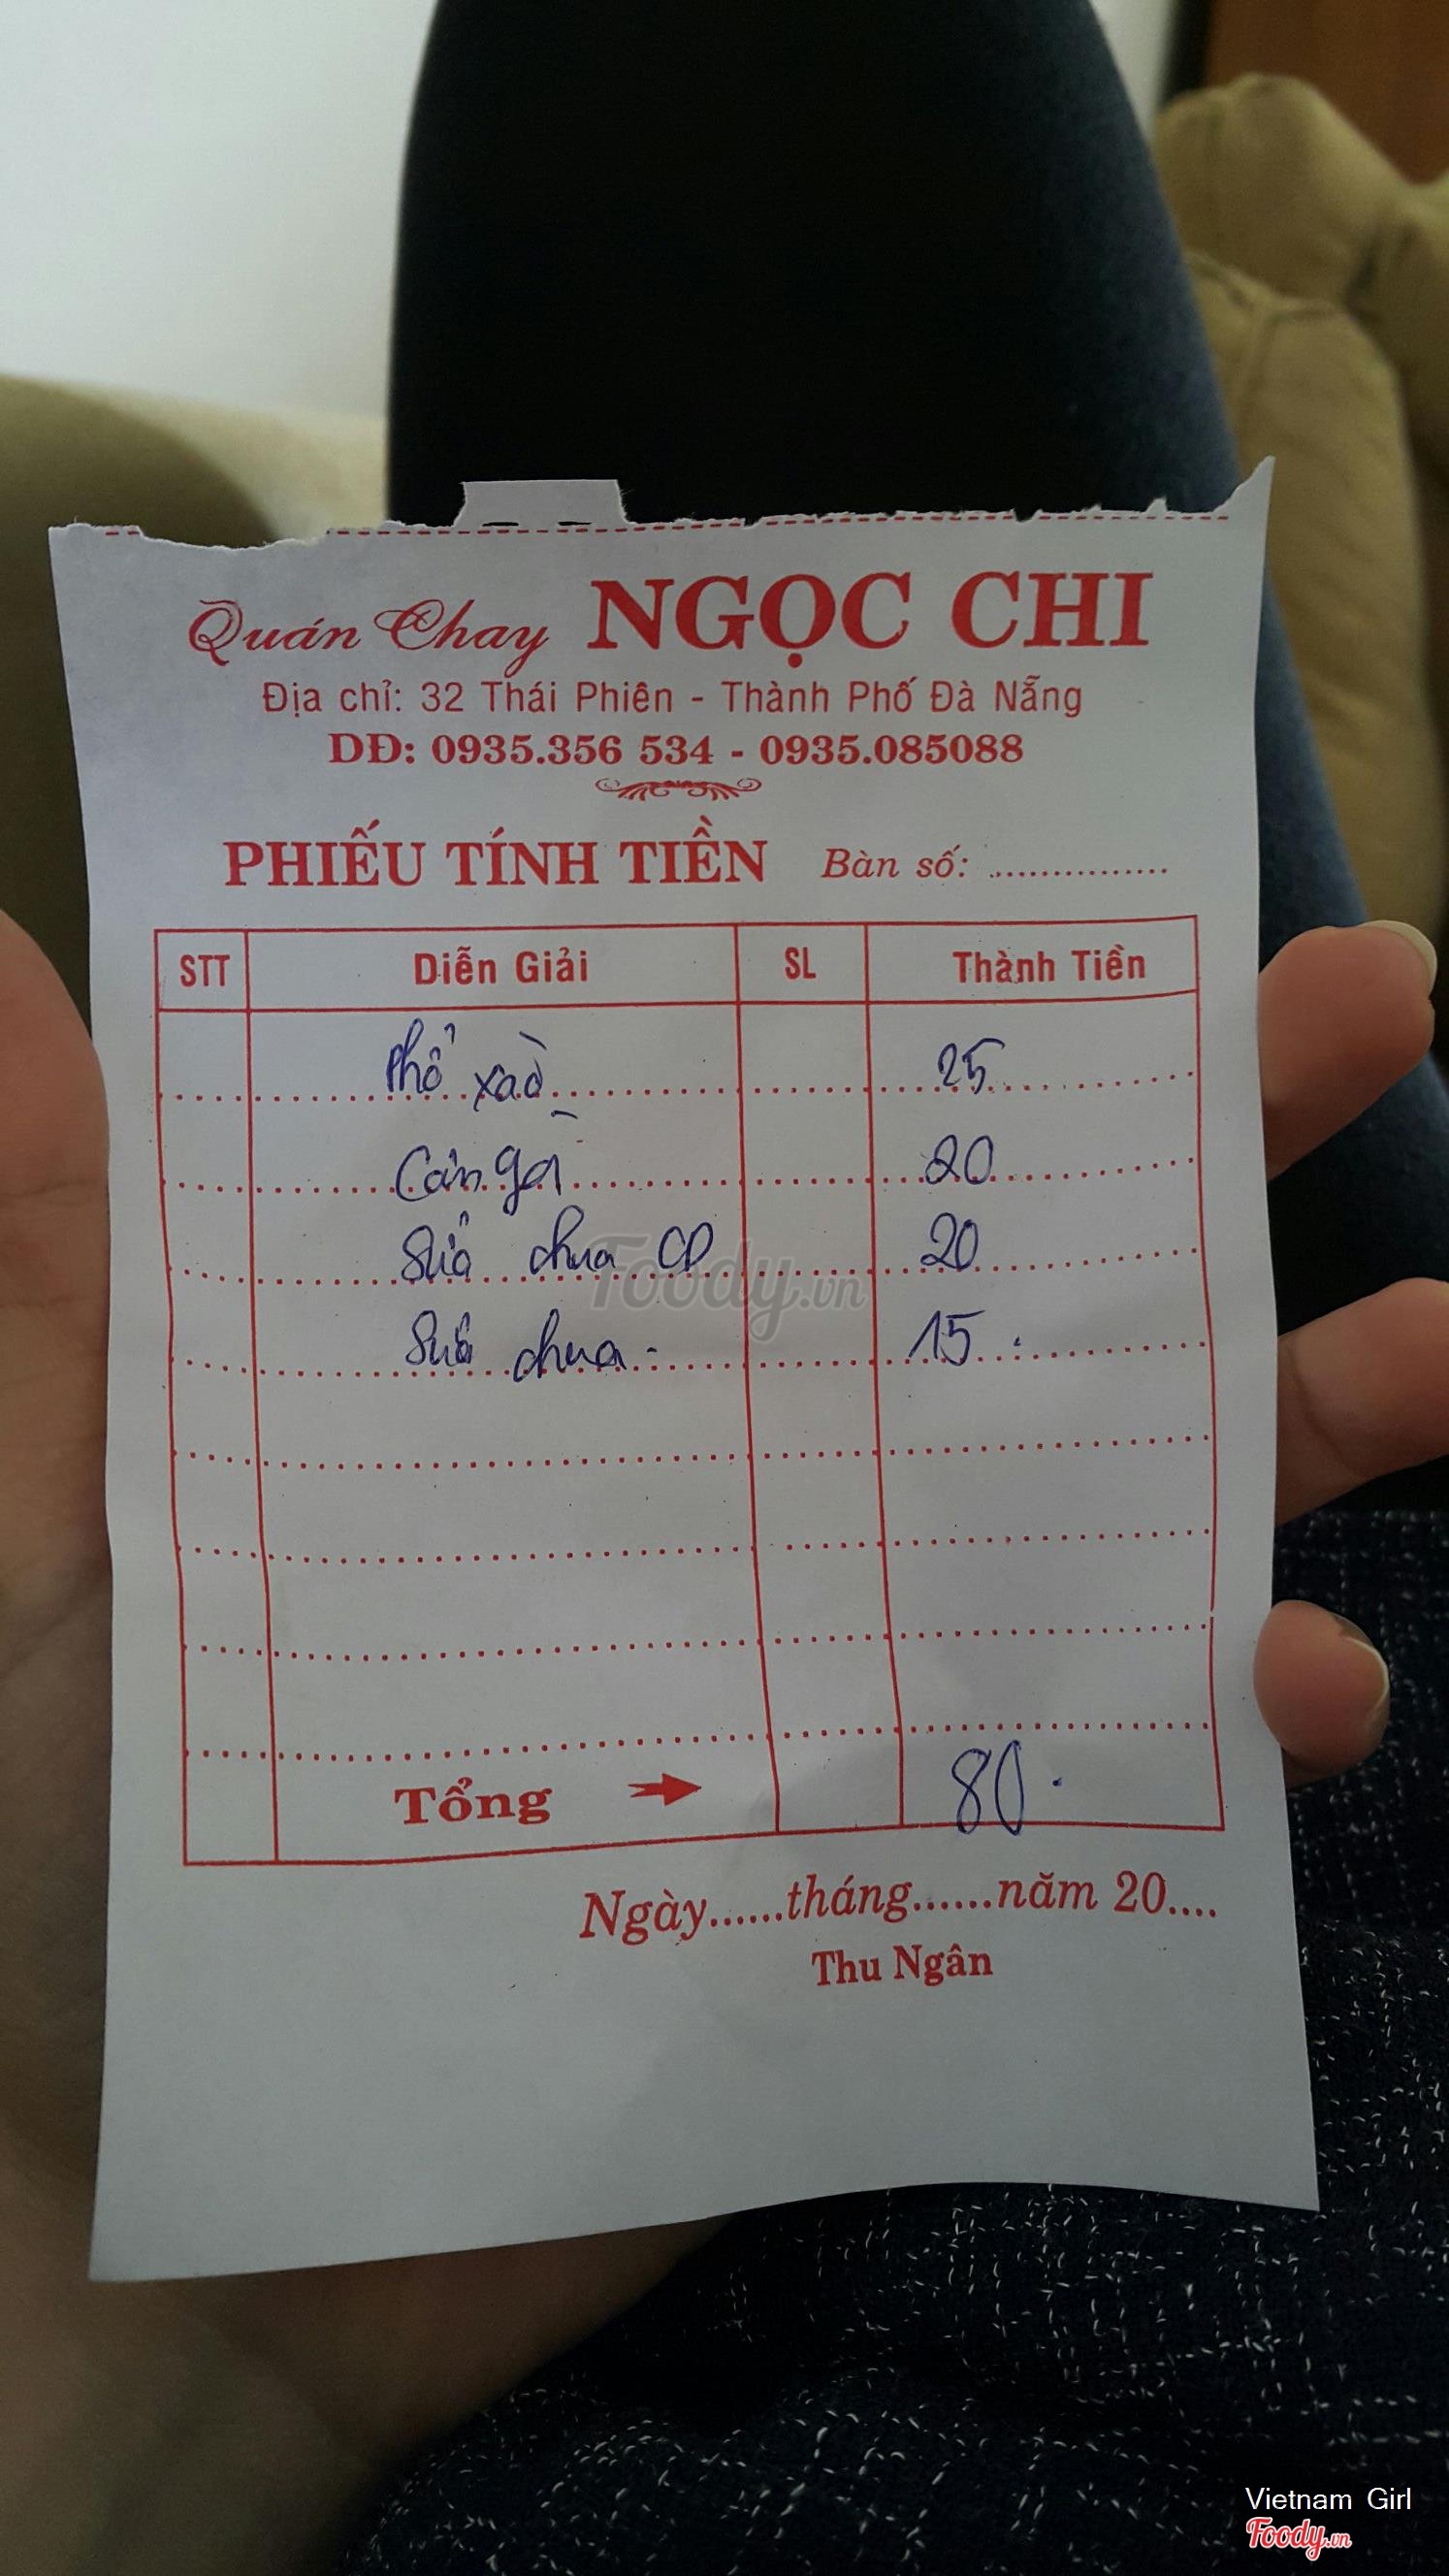 Quán Chay NGỌC CHI
Địa chỉ: 32 Thái Phiên - Thành Phố Đà Nẵng
DĐ: 0935.356 534 - 0935.085088
PHIẾU TÍNH TIỀN Bàn số: ...............
STT Diễn Giải SL Thành Tiền
Phở xào 25
gà 20
Sữa chua CD 20
Sữa chua - 15.
Foody.vn
Tổng 80.
Ngày......tháng......năm 20....
Thu Ngân
Vietnam Girl
Foody.vn